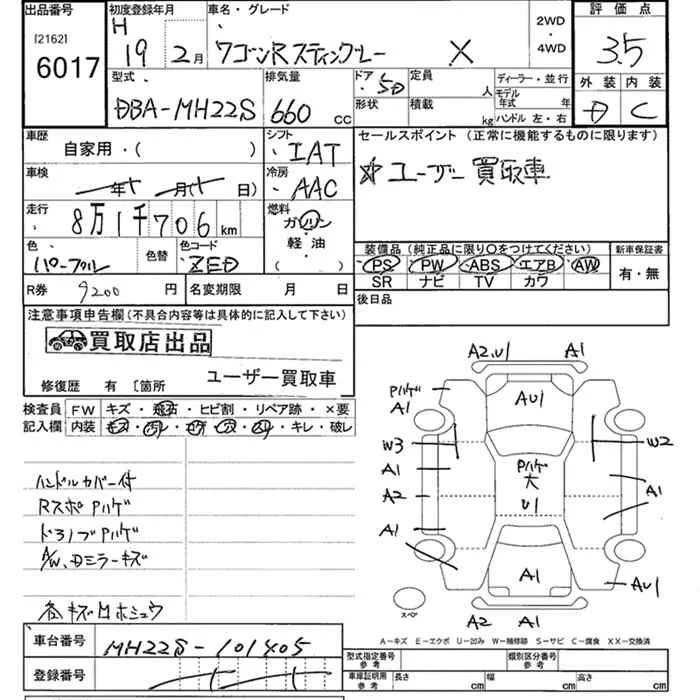 出品番号
[2162]
6017
初度登録年月
H
19 2月
車名・グレード
ワゴンR スティングレー X
2WD
・
4WD
評価点
3.5
型式
DBA-MH22S
排気量
660 cc
ドア 5D
形状
定員 人
積載 kg
ディーラー・並行
モデル年式 年
ハンドル 左・右
外装 内装
D C
車歴
自家用・( )
シフト
IAT
セールスポイント (正常に機能するものに限ります)
☆ユーザー買取車
車検
年 月( 日)
冷房
AAC
走行
8万1千706km
燃料
ガソリン
軽油
( )
色
パープル
色替
色コード
ZED
装備品 (純正品に限り○をつけてください)
PS PW ABS エアB AW
SR ナビ TV カワ
新車保証書
有・無
R券 9200 円
名変期限 月 日
後日品
注意事項申告欄(不具合内容等は具体的に記入して下さい)
買取店出品
ユーザー買取車
修復歴 有 〔箇所
検査員
記入欄
FW キズ・飛石・ヒビ割・リペア跡・×要
内装 キズ・汚レ・コゲ・穴・スリ・キレ・破レ
ハンドルカバー付
Rスポ Pハゲ
ドアノブPハゲ
A/W、Dミラーキズ
各キズ凹ホシュウ
A2,U1 A1
Pハゲ
A1
AU1
W3
W2
A1
Pハゲ
大
U1
A2
A1
A1
A1
AU1
スペア
A2 A1
A-キズ E-エクボ U-凹み W-補修跡 S-サビ C-腐食 XX-交換済
車台番号
MH22S-101405
登録番号
型式指定番号
参考
類別区分番号
参考
車庫証明用
参考
長さ cm
幅 cm
高さ cm